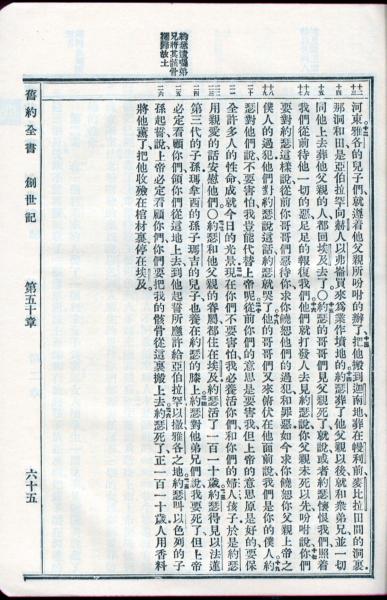 約瑟遺囑弟
兄將其骸骨
攜歸故土
河東雅各的兒子們就遵着他父親所吩咐的辦了把他搬到迦南地葬在幔利前麥比拉田間的洞裏
那洞和田是亞伯拉罕向赫人以弗崙買來爲業作墳地的約瑟葬了他父親以後就和衆弟兄並一切
同他上去葬他父親的人都回埃及去了〇約瑟的哥哥們見父親死了就說或者約瑟懷恨我們照着
我們從前待他一切的惡足足的報復我們他們就打發人去見約瑟說你父親未死以先吩咐說你們
要對約瑟這樣說從前你哥哥們惡待你求你饒恕他們的過犯和罪惡如今求你饒恕你父親上帝之
僕人的過犯他們對約瑟說這話約瑟就哭了他的哥哥們又來俯伏在他面前說我們是你的僕人約
瑟對他們說不要害怕我豈能代替上帝呢從前你們的意思是要害我但上帝的意思原是好的要保
全許多人的性命成就今日的光景現在你們不要害怕我必養活你們和你們的婦人孩子於是約瑟
用親愛的話安慰他們〇約瑟和他父親的眷屬都住在埃及約瑟活了一百一十歲約瑟得見以法蓮
第三代的子孫瑪拿西的孫子瑪吉的兒子也養在約瑟的膝上約瑟對他弟兄們說我要死了但上帝
必定看顧你們領你們從這地上去到他起誓所應許給亞伯拉罕以撒雅各之地約瑟叫以色列的子
孫起誓說上帝必定看顧你們你們要把我的骸骨從這裏搬上去約瑟死了正一百一十歲人用香料
將他薰了把他收殮在棺材裏停在埃及
舊約全書 創世記 第五十章 六十五